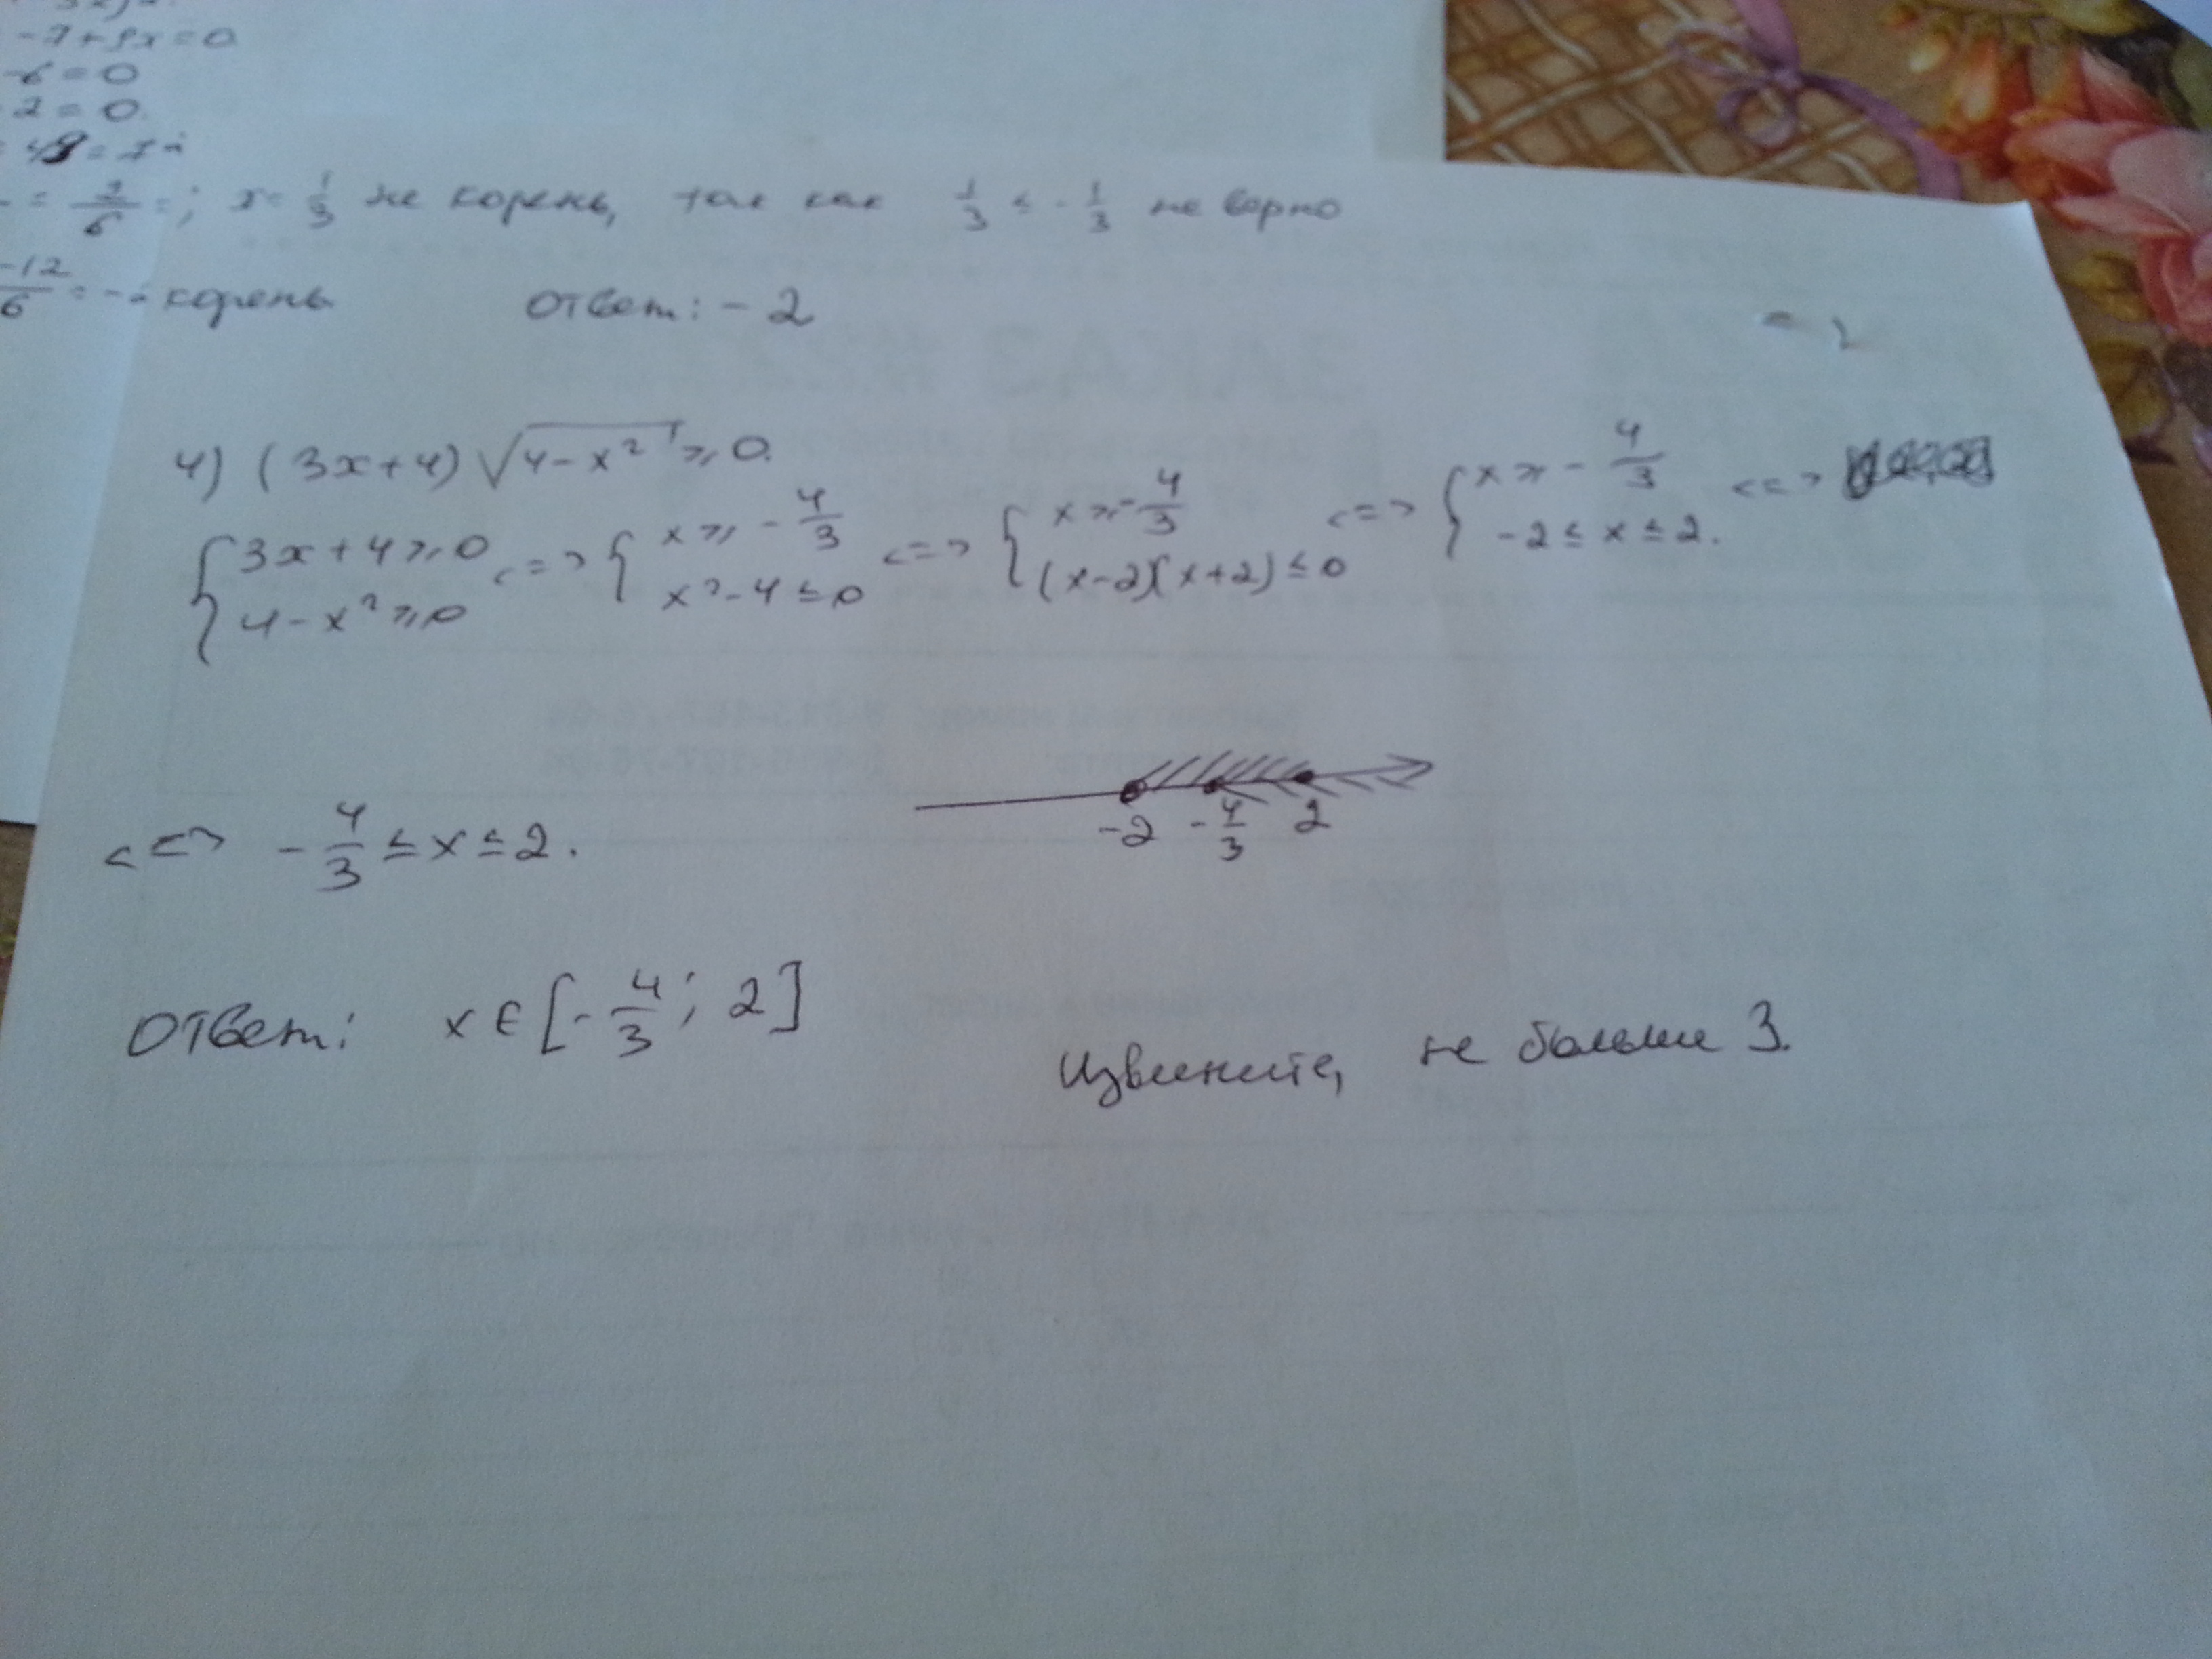 -7+9x=0
-6=0
2=0.
x=1/3 не корень, так как 1/3 ≤ -1/3 не верно
-12/6 = -2 корень. Ответ: -2
4) (3x+4)√(4-x²) ≥ 0.
{3x+4≥0 <=> {x≥-4/3 <=> {x≥-4/3 <=> {x≥-4/3 <=>
4-x²≥0 x²-4≤0 (x-2)(x+2)≤0 -2≤x≤2.
-2 -4/3 2
<=> -4/3 ≤ x ≤ 2.
Ответ: x∈[-4/3; 2]
Извините, не больше 3.